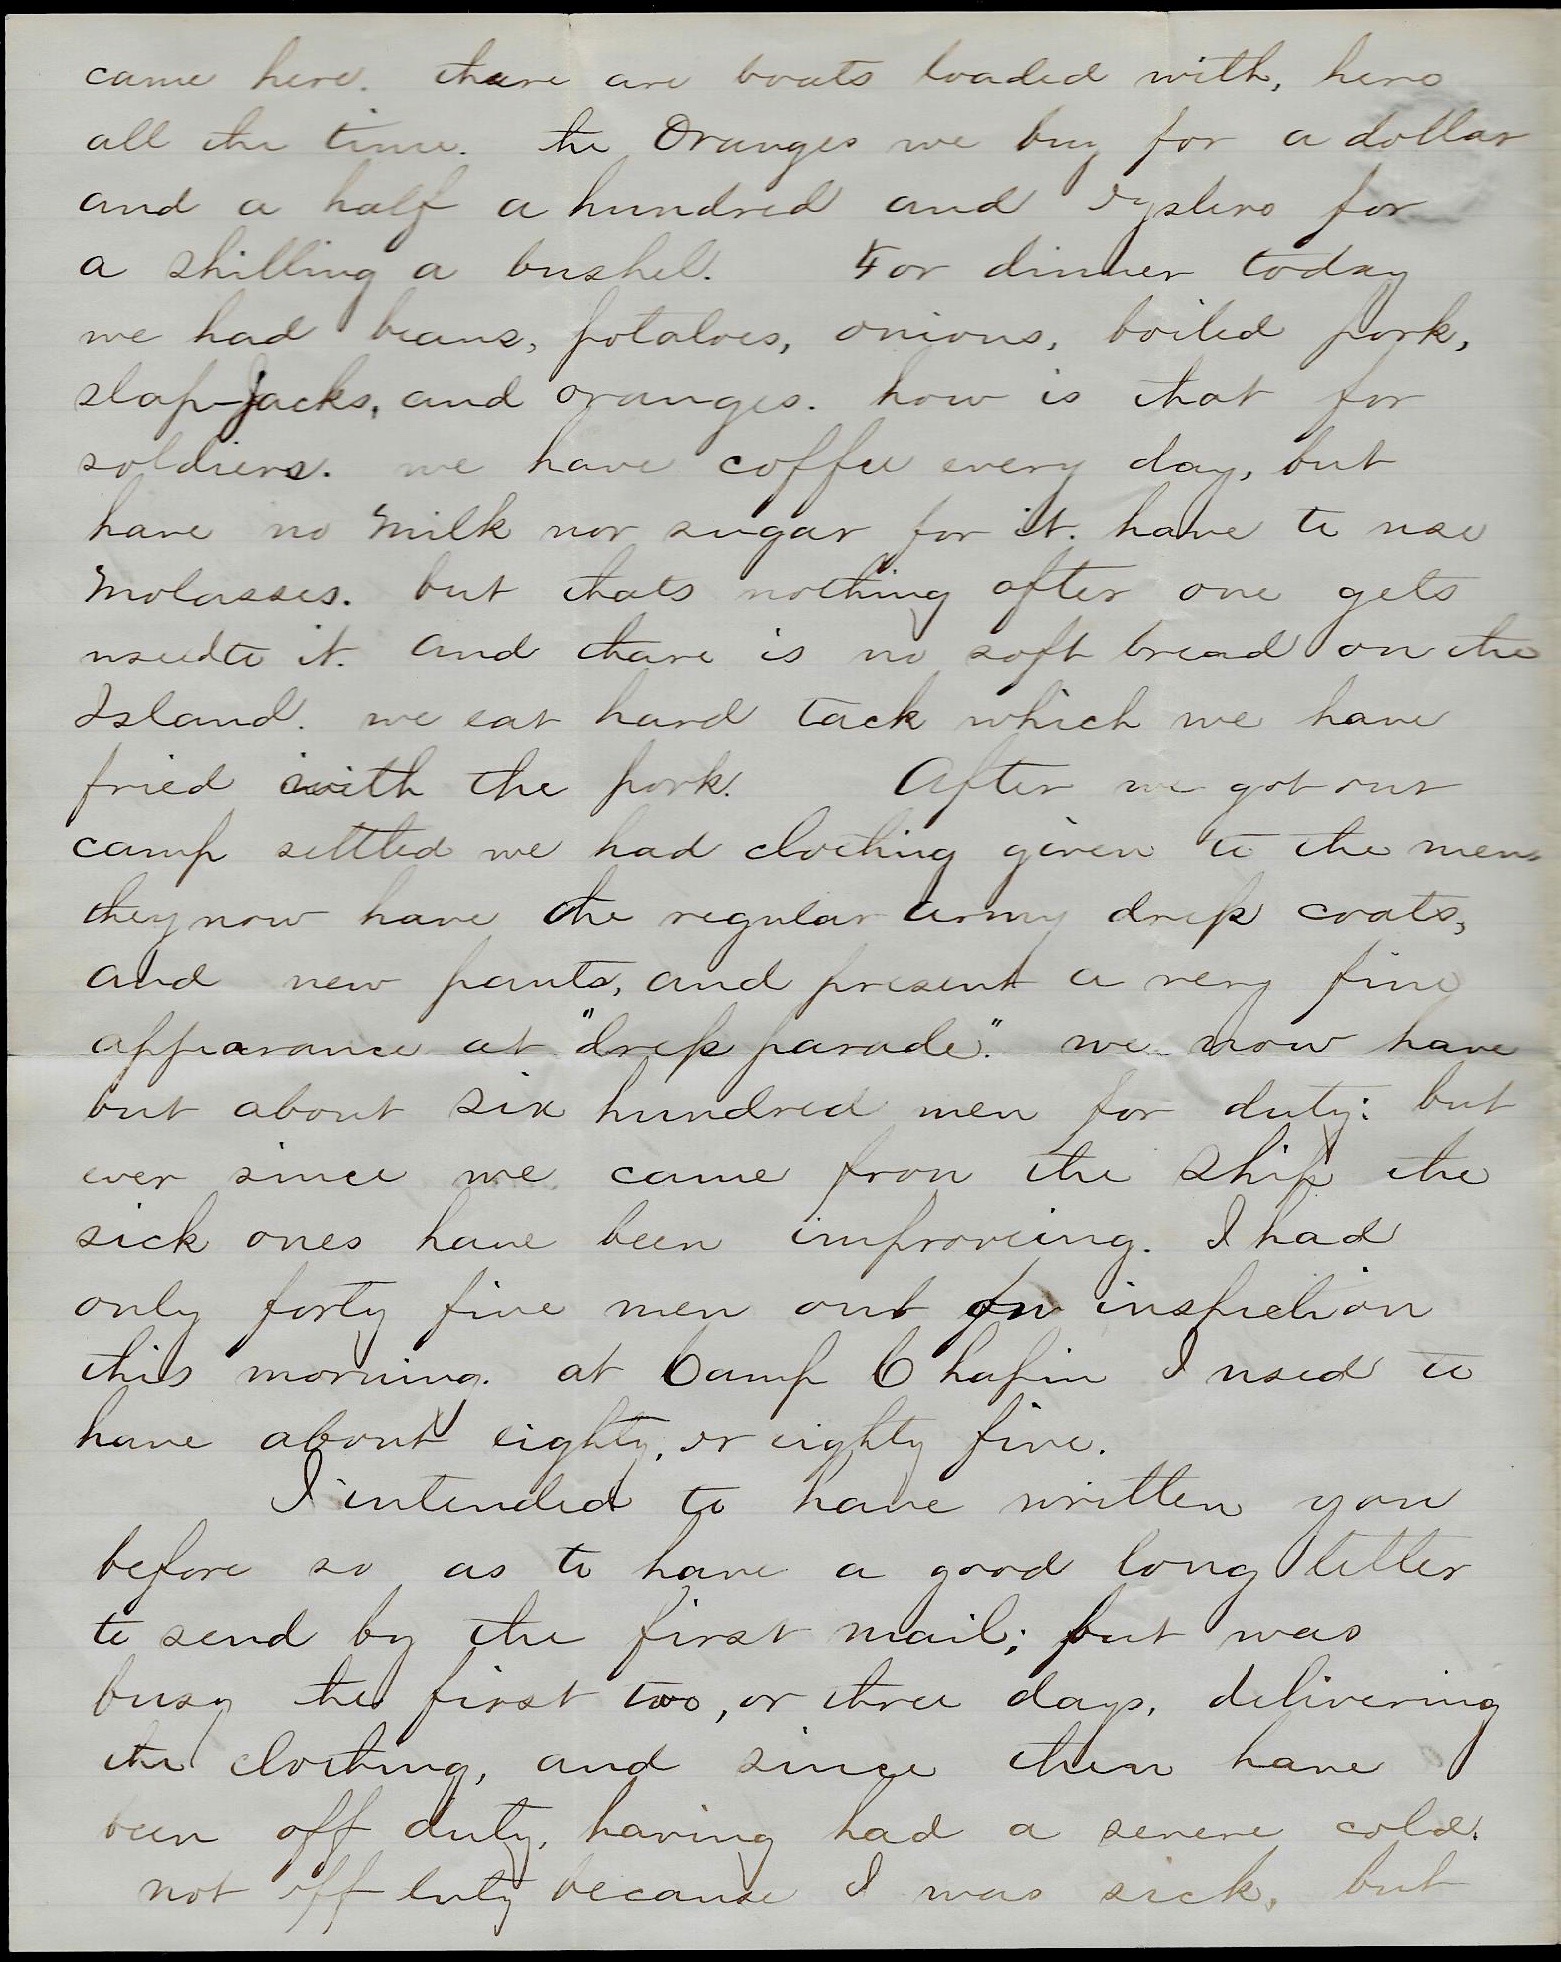 came here. thare are boats loaded with, here
all the time. the Oranges we buy for a dollar
and a half a hundred and oysters for
a shilling a bushel. For dinner today
we had beans, potatoes, onions, boiled pork,
slap-Jacks, and oranges. how is that for
soldiers. we have coffee every day, but
have no milk nor sugar for it. have to use
Molasses. but thats nothing after one gets
usedto it. and thare is no soft bread on the
Island. we eat hard tack which we have
fried with the pork. After we got our
camp settled we had clothing given to the men.
they now have the regular army dress coats,
and new pants, and present a very fine
appearance at "dress parade." we now have
but about six hundred men for duty: but
ever since we came from the ship the
sick ones have been improveing. I had
only forty five men out on inspection
this morning. at Camp Chapin I used to
have about eighty, or eighty five.
I intended to have written you
before so as to have a good long letter
to send by the first mail; but was
busy the first two, or three days, delivering
the clothing, and since then have
been off duty, having had a severe cold.
not off duty because I was sick, but